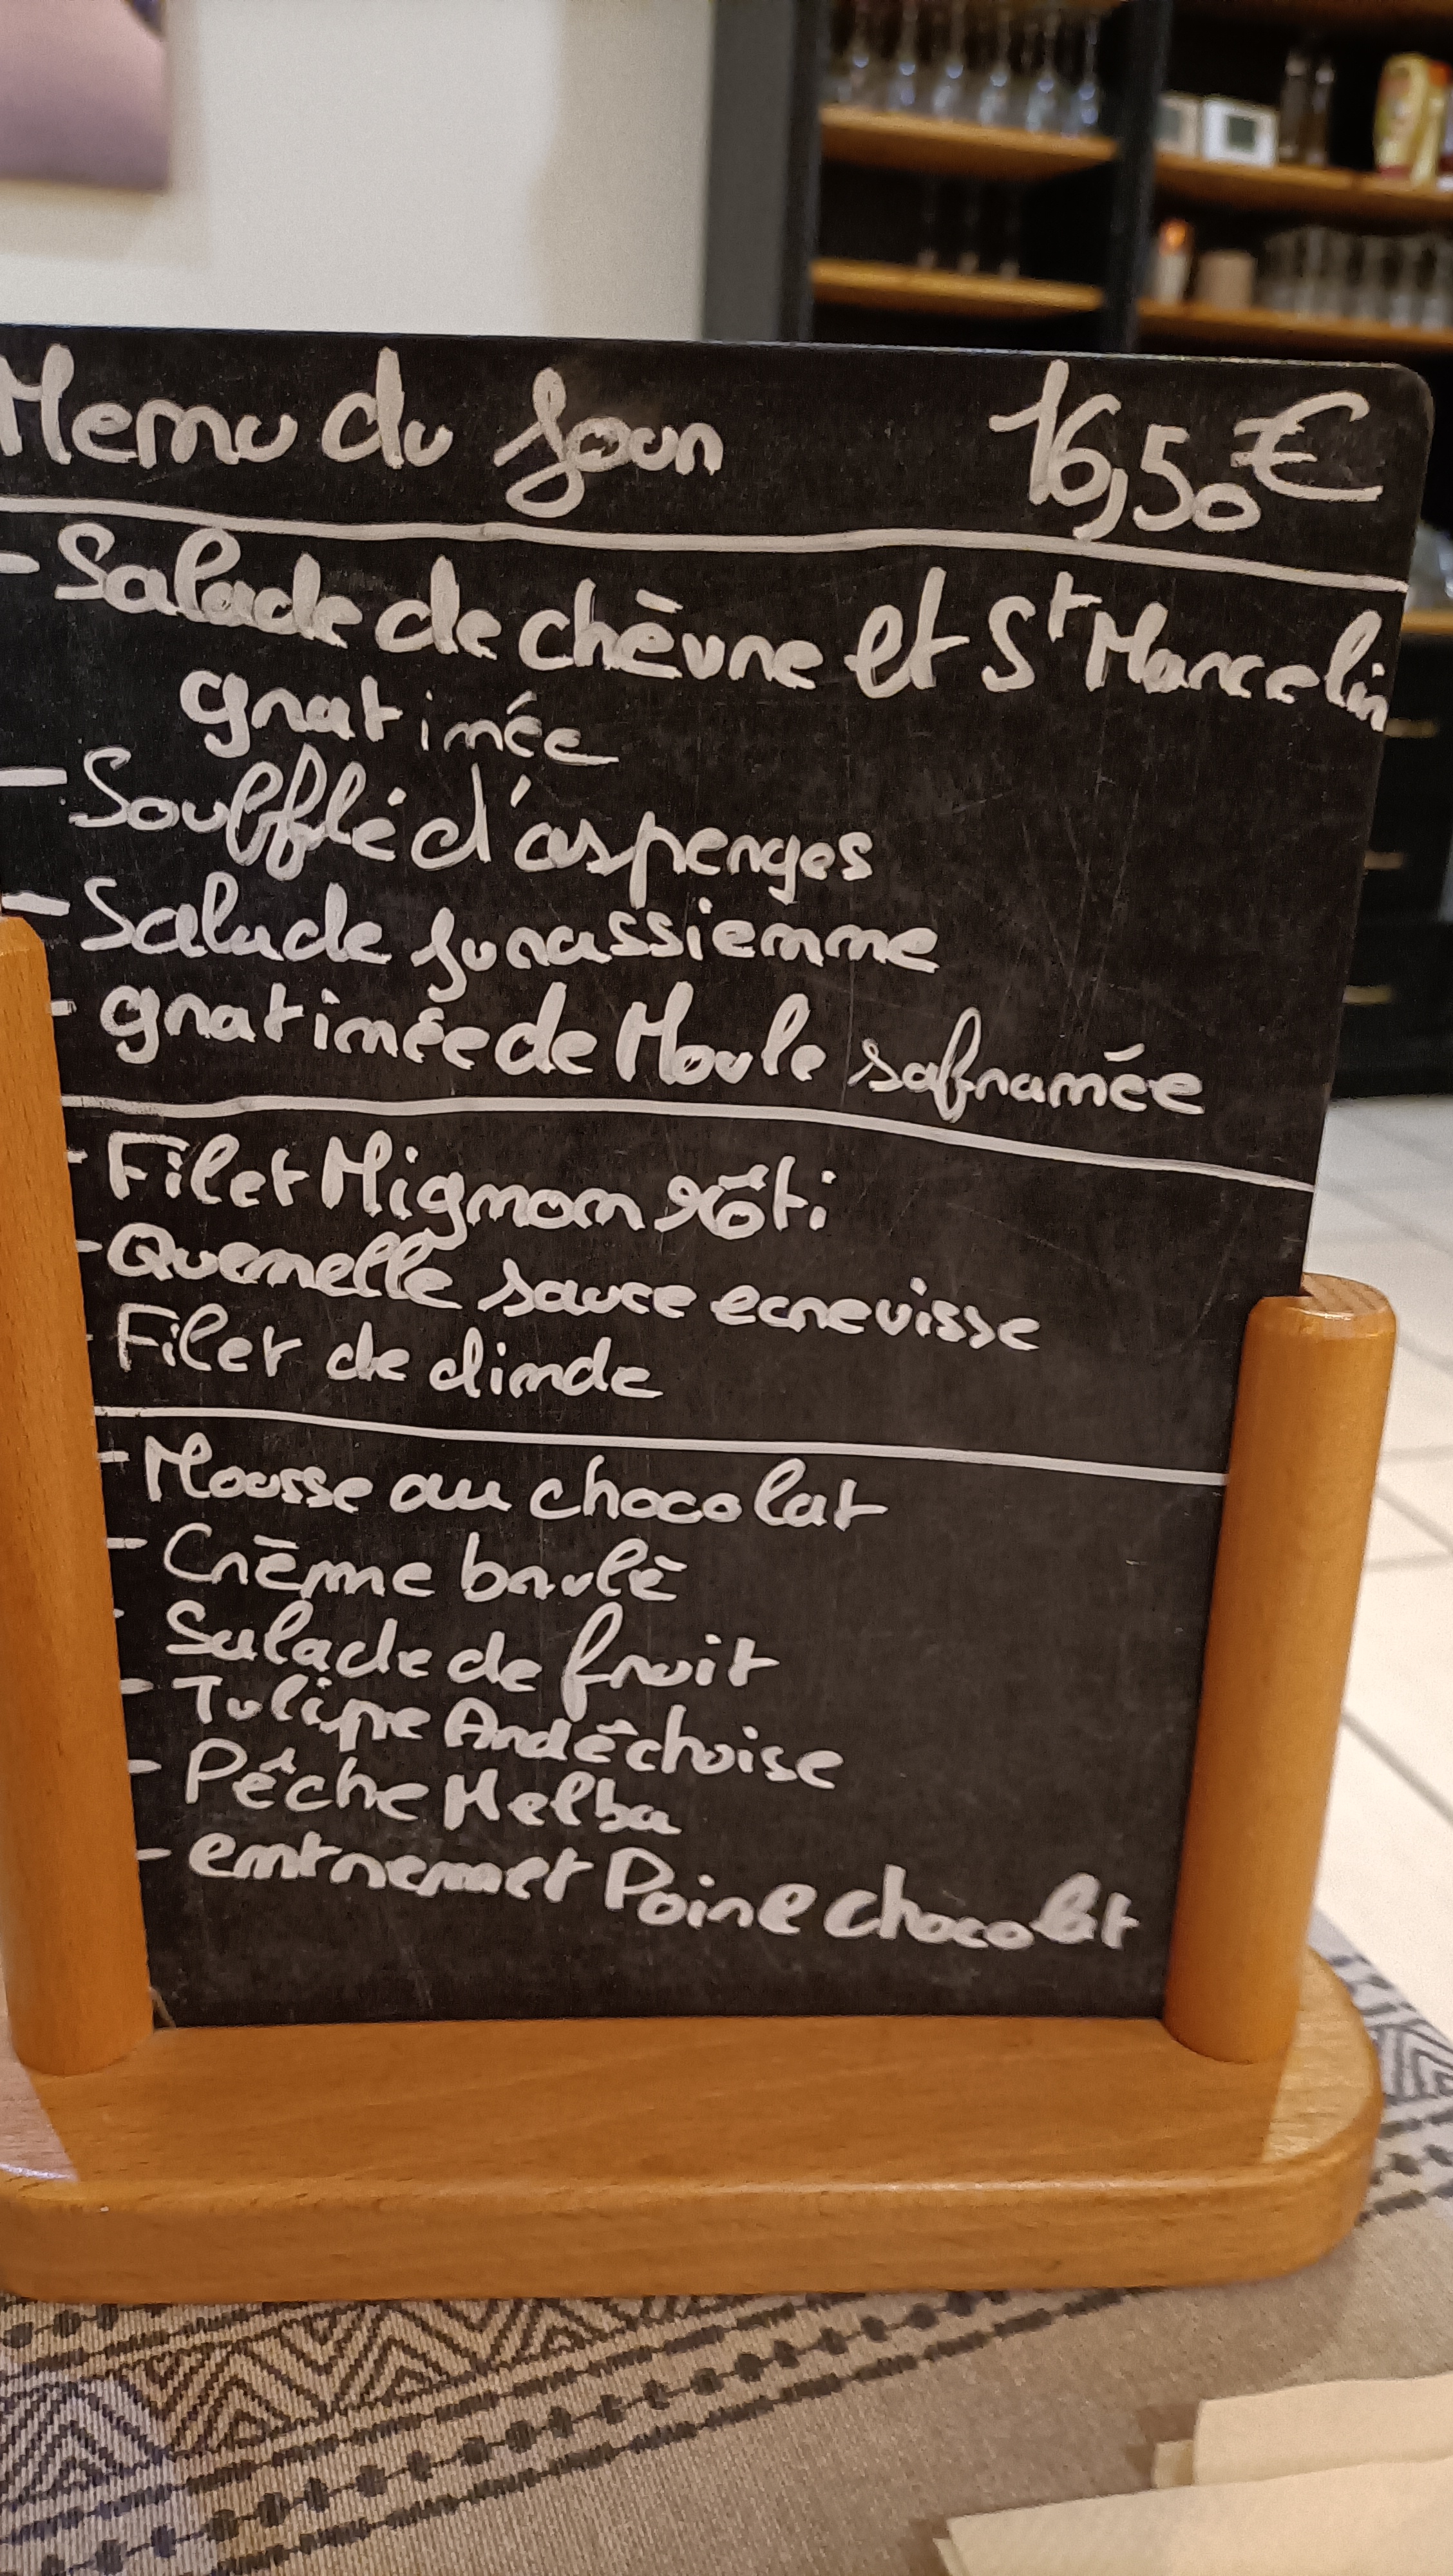 Menu du Jour 16,50€
- Salade de chèvre et St Marcelin
gratinée
- Soufflé d'asperges
- Salade Jurassienne
- gratinée de Moule safranée
- Filet Mignon rôti
- Quenelle sauce ecrevisse
- Filet de dinde
- Mousse au chocolat
- Crème brulè
- Salade de fruit
- Tulipe Ardèchoise
- Pêche Melba
- entremet Poire chocolat